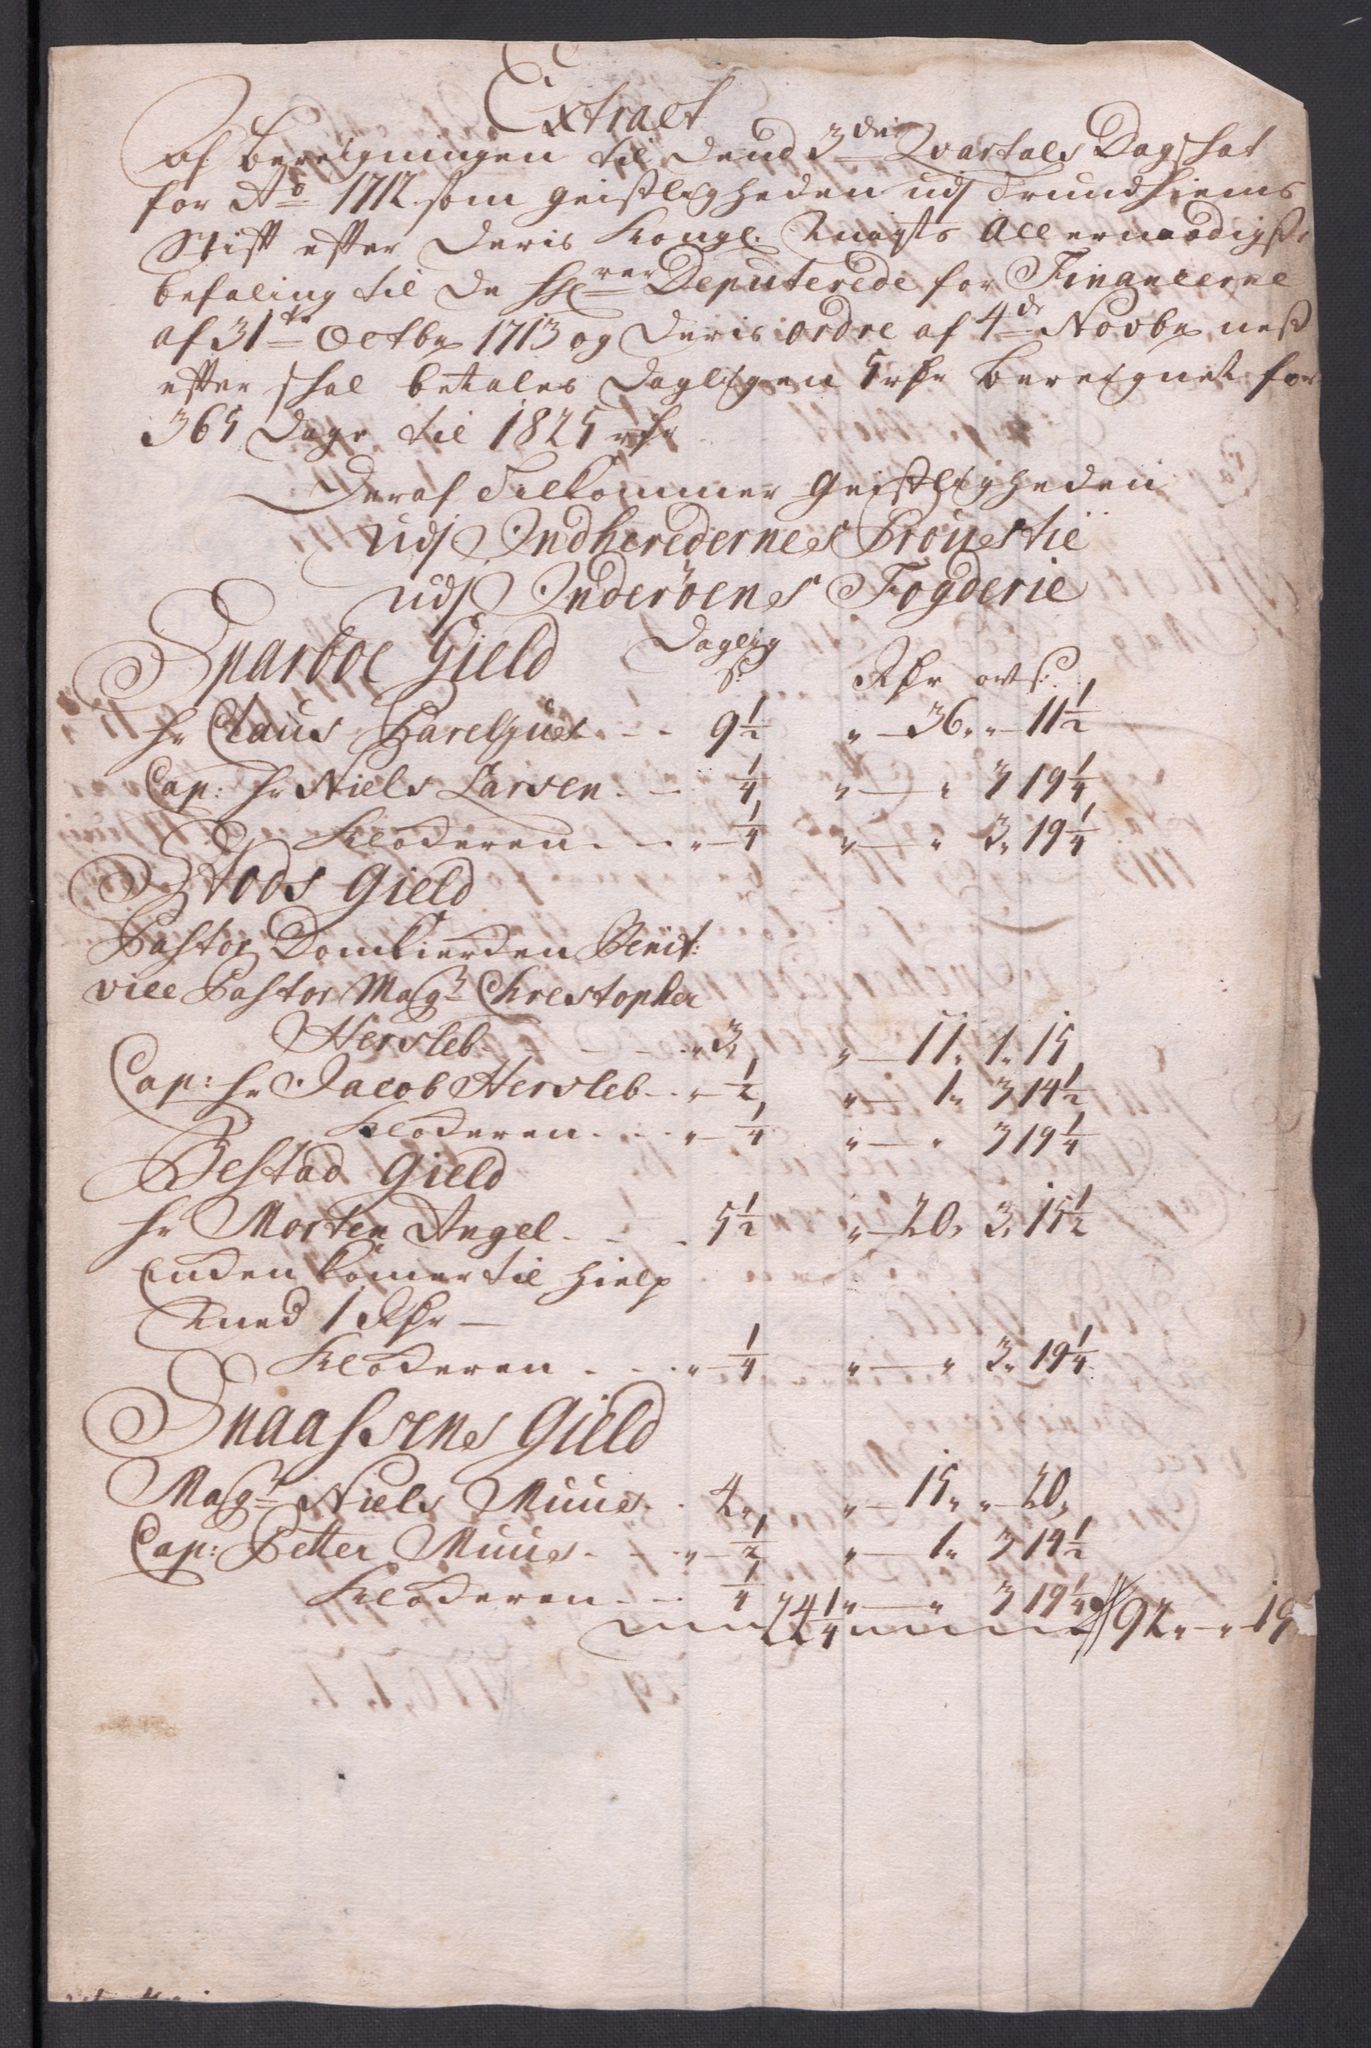 Extract
Af Bereigningen til dend 3de Qvartals Dagschat
for Ao 1712 som geistligheden udj Trundhiems
Stift efter Deris Kongl. Mayts Allernaadigste
befaling til de HHrer Deputerede for Financerne
af 31te Octbr 1713 og deris ordre af 4de Novbr nest
efter schal betales Dagligen 5 rdr Bereignet for
365 Dage til 1825 rdr
Deraf Tilkommer Geistligheden
udj Indherredernes Provestie
udj Inderöens Fogderie
Sparboe Gield Daglig
s: Rdr ort s:
hr Claus Parelius - - 9 1/2 " 36 " " 11 1/2
Cap: hr Niels Larsen - - 1/4 " — " 3 19 1/4
Klockeren - - " 1/4 " — " 3 " 19 1/4
Stods Gield
Pastor Domkierckens Penit:
vice Pastor Magr Christopher
Hersleb - - - - " 3 " — 11 " 1 " 15
Cap: hr Jacob Hersleb - " 1/2 " — 1 " 3 14 1/2
Klockeren - - - " 1/4 " — " 3 19 1/4
Bestad Gield
hr Morten Angel - - - 5 1/2 " 20 " 3 " 15 1/2
Enden komer til hielp
med 1 Rdr —
Klockeren - - - " 1/4 " — " 3 " 19 1/4
Snaasens Gield
Magr Niels Muus - - 4 " " — 15 " " 20 "
Cap: Petter Muus - - " 1/2 " — 1 " 3 14 1/2
Klockeren - - 1/4 " — " 3 19 1/4
24 1/4 92 " " 19